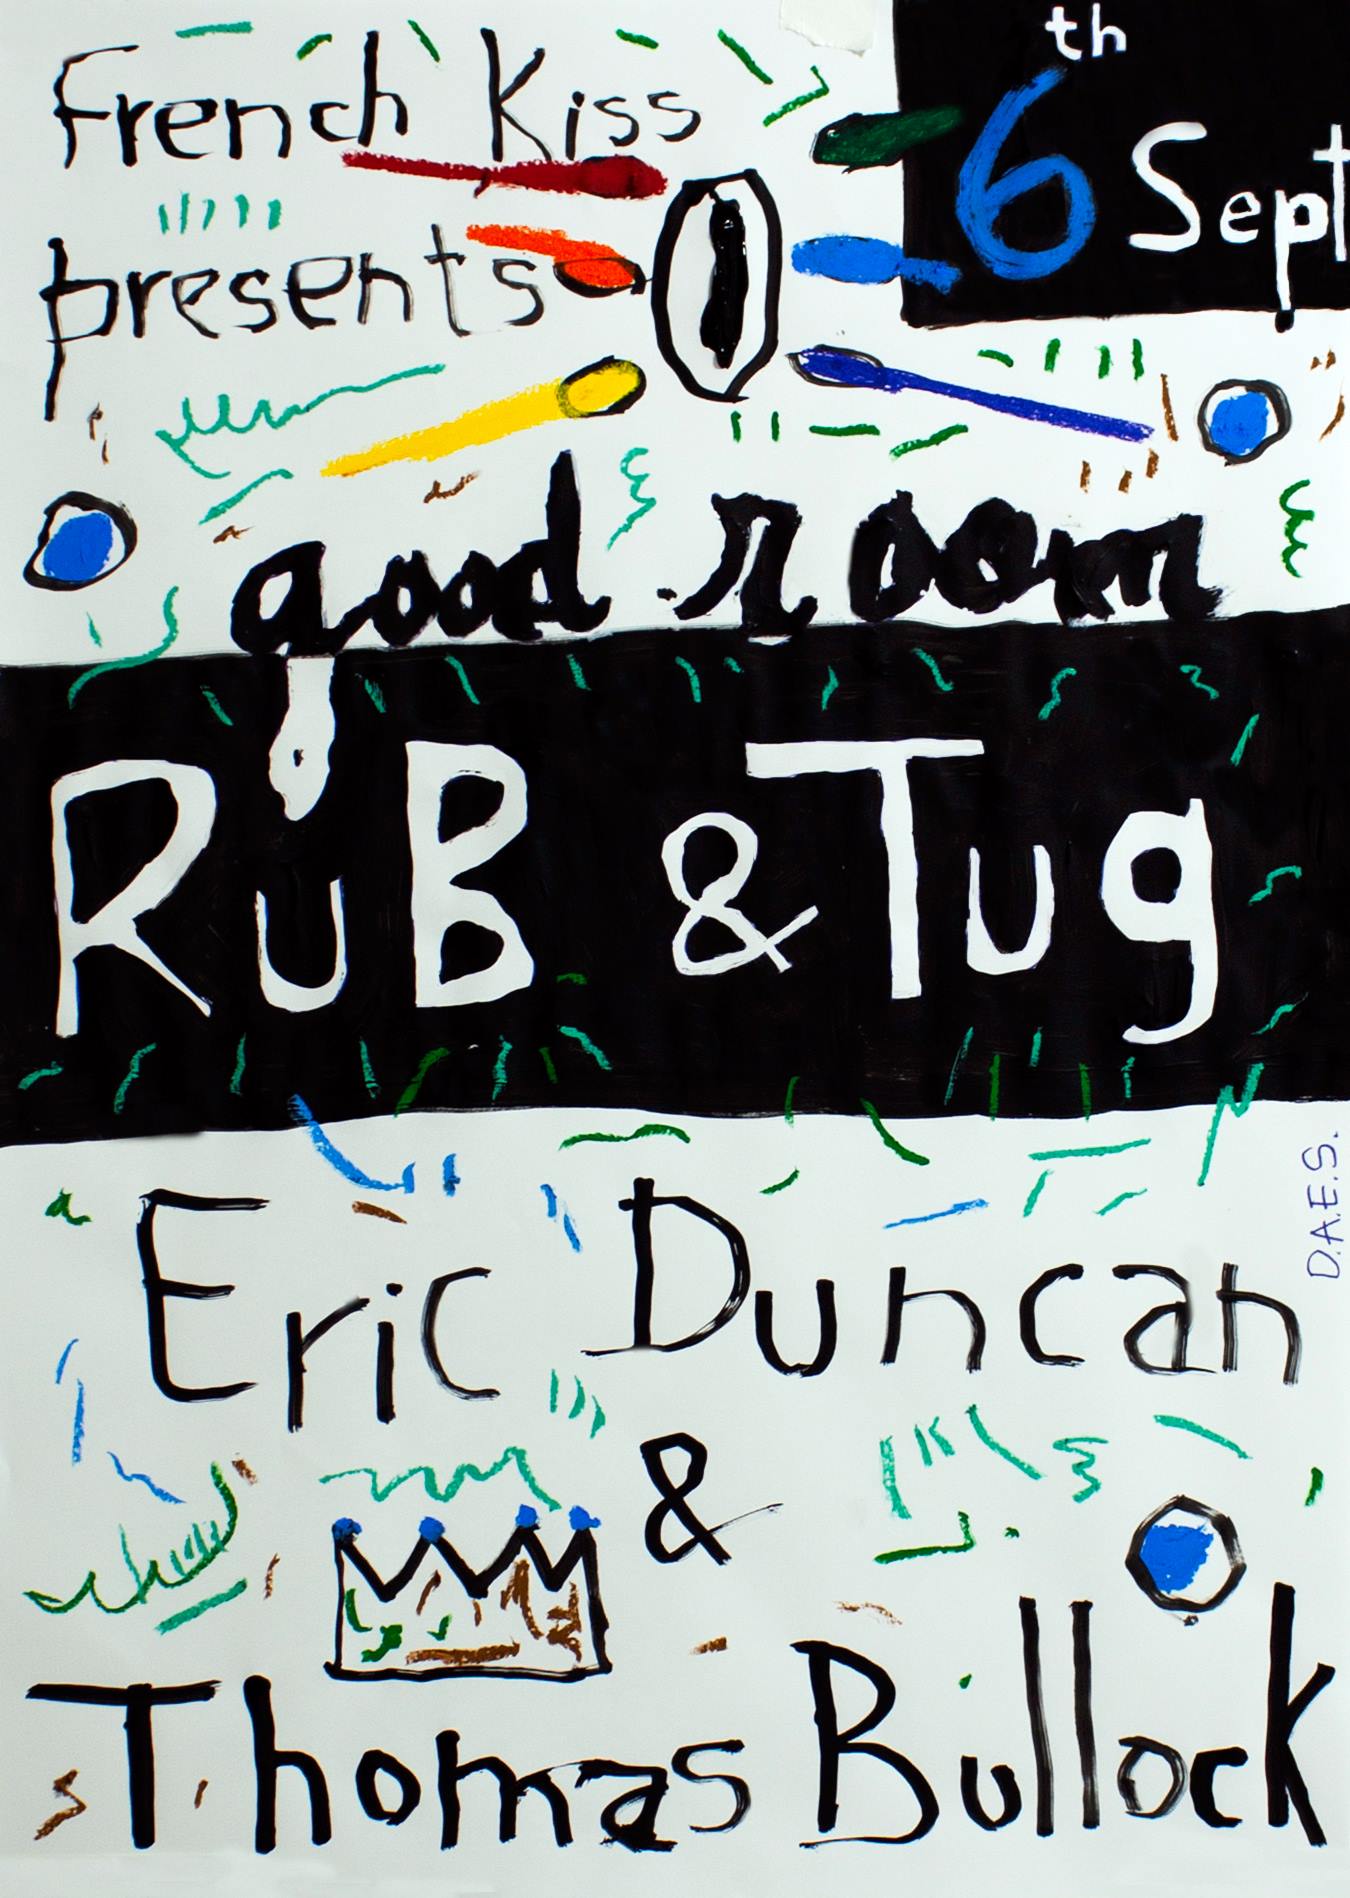 French Kiss
presents
6th Sept
good room
RuB & Tug
D.A.E.S.
Eric Duncan
&
Thomas Bullock